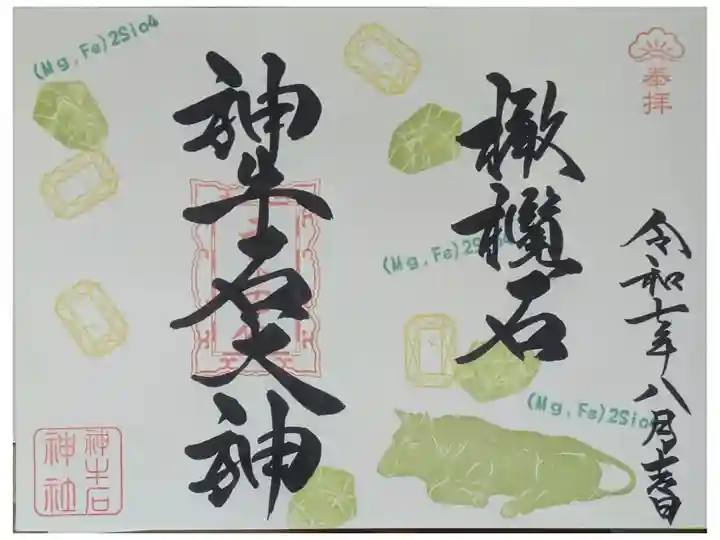 奉拝
令和七年八月吉日
橄欖石
神牛石大神
神牛石
神社
(Mg,Fe)2Sio4
(Mg,Fe)2Sio4
(Mg,Fe)2Sio4